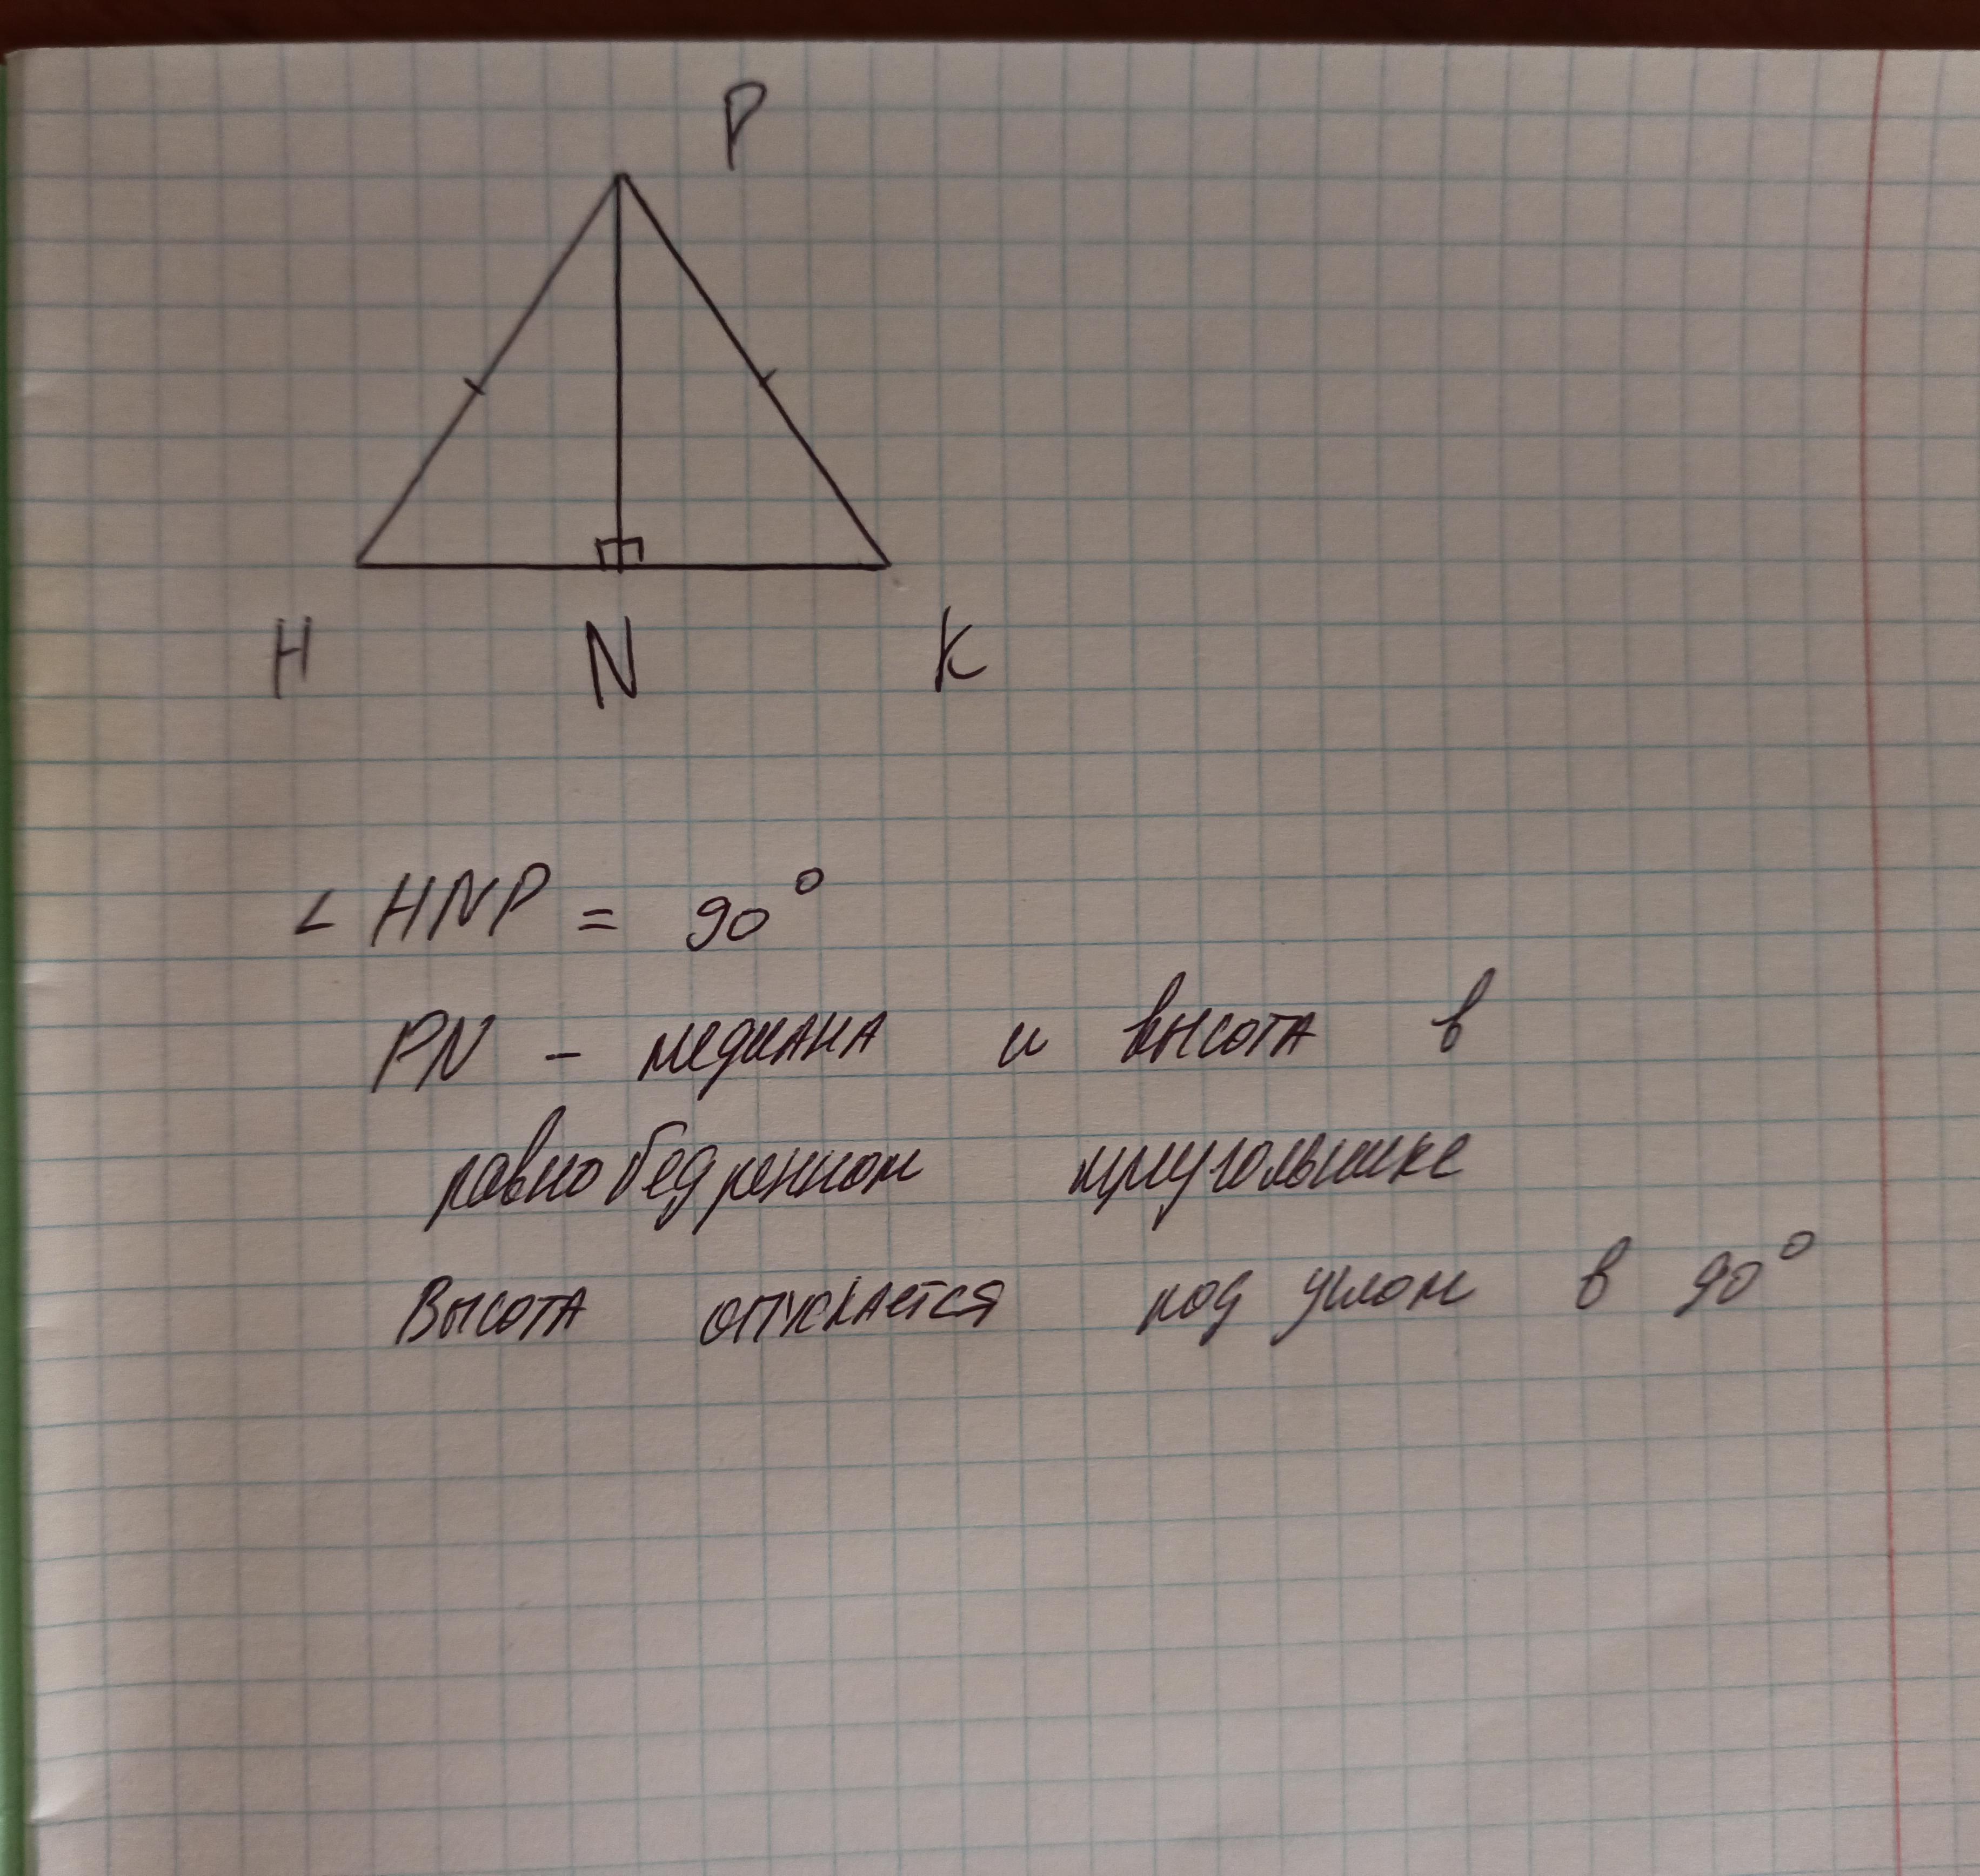 P
H N K
∠ HNP = 90°
PN - медиана и высота в
равнобедренном триугольнике
Высота опускается под углом в 90°